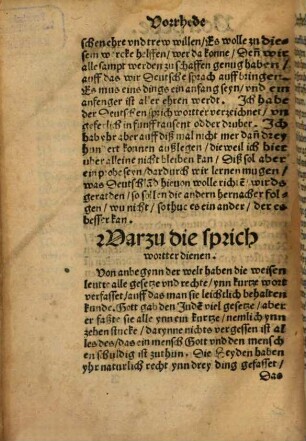 Vorrhede
schen ehre vnd trew willen / Es wolle zu die-
sem wercke helffen / wer da könne / Deñ wir
alle sampt werden zu schaffen genug haben /
auff das wir Deutsche sprach auff bringen.
Es mus eins dings ein anfang seyn / vnd ein
anfenger ist aller ehren werdt. Ich habe
der Deutschen sprichwortter verzeichnet / vn
geferlich in funfftausent odder druber. Ich
hab yhr aber auff diß mal nicht mer dañ drey
hundert konnen außlegen / die weil ich hier
uber alleine nicht bleiben kan / Diß sol aber
ein probe seyn / dardurch wir lernen mugen /
was Deutschlãd hieuon wolle richtẽ / wirds
geratten / so sollen die andern hernacher fol-
gen / wu nicht / so thue es ein ander / der es
besser kan.
Warzu die sprich
wortter dienen.
Von anbegynn der welt haben die weisen
leutte alle gesetze vnd rechte / ynn kurtze wort
verfasset / auff das man sie leichtlich behalten
kunde. Gott gab den Judẽ viel gesetze / aber
er faßte sie alle ynn ein kurtze / nemlich ynn
zehen stucke / darynne nichts vergessen ist al
les des / das ein mensch Gott vnd den mensch
en schuldig ist zuthun. Die Heyden haben
yhr naturlich recht ynn drey ding gefasset /
Das